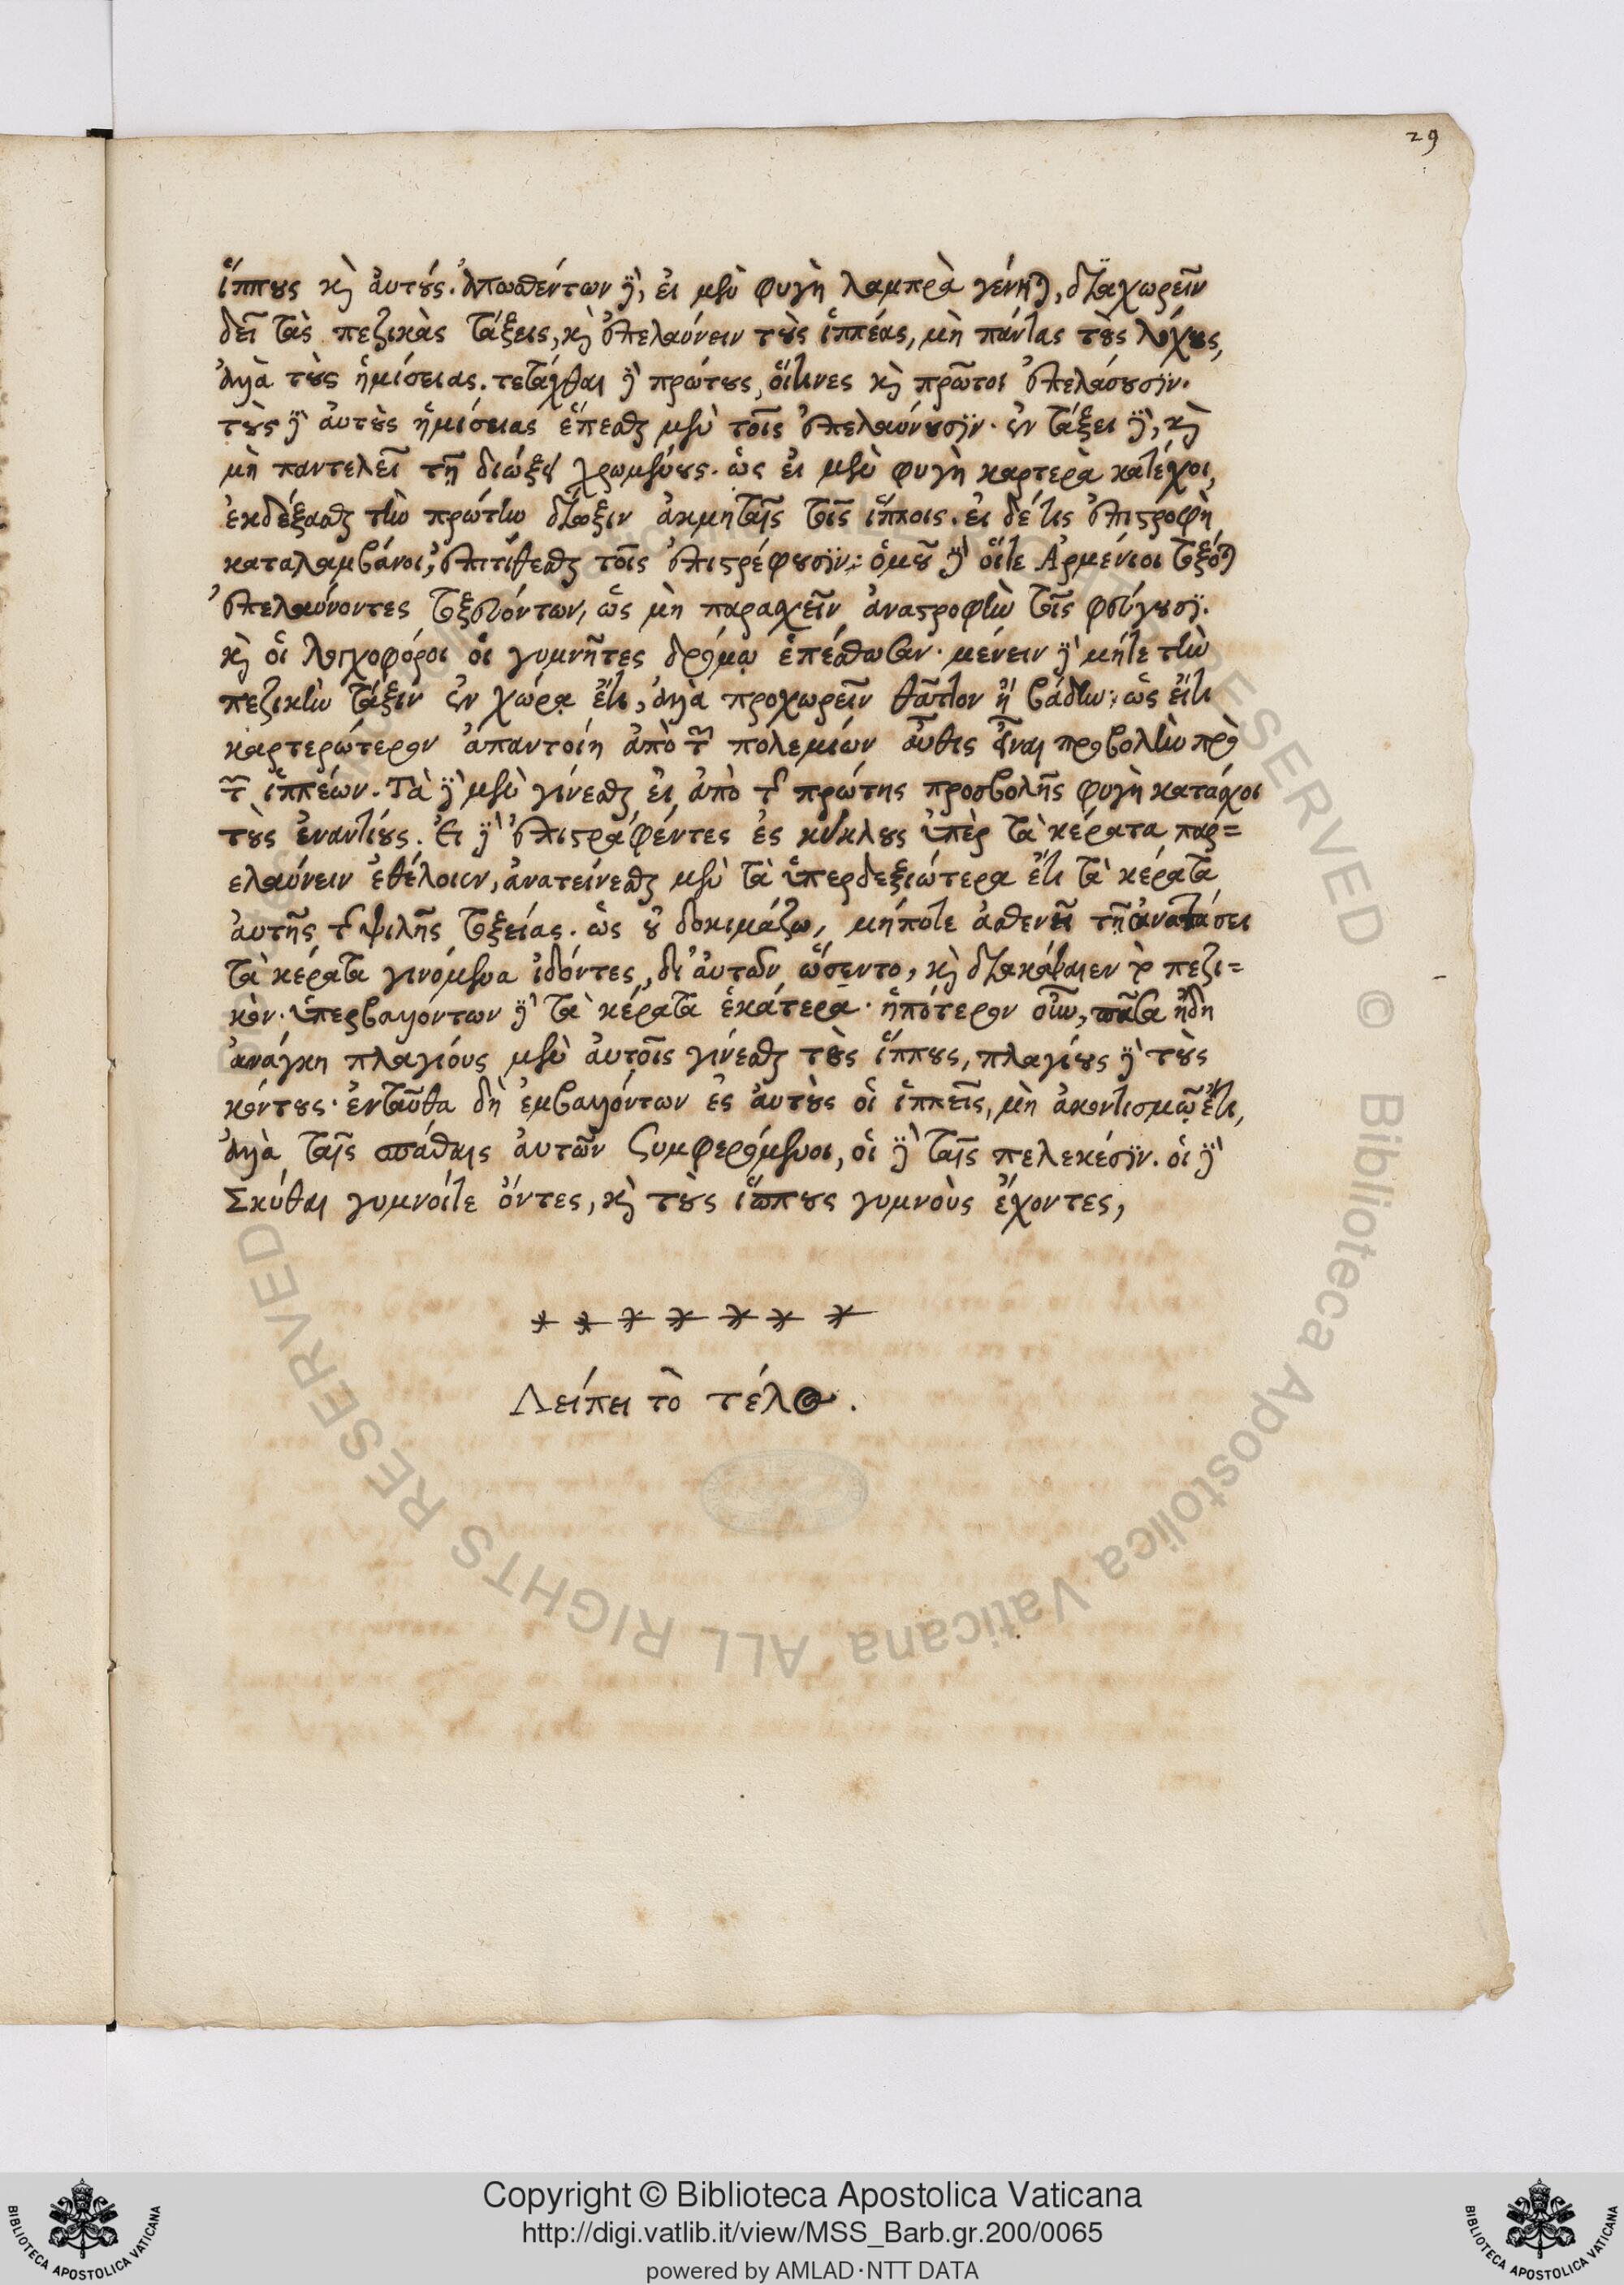 29
ἵππους καὶ ἀυτούς. ἀπωσθέντων δὲ, ἐι μὲν φυγὴ λαμπρὰ γένηται, διαχωρεῖν
δεῖ τὰς πεζικὰς τάξεις, καὶ ἐπελαύνειν τοὺς ἱππέας, μὴ πάντας τοὺς λόχους,
ἀλλὰ τοὺς ἡμίσειας. τετάχθαι δὲ πρώτους, οἵτινες καὶ πρῶτοι ἐπελάσουσιν.
τοὺς δὲ ἀυτοὺς ἡμισείας ἕπεσθαι μὲν τοῖς ἐπελαύνουσιν. ἐν τάξει δὲ, καὶ
μὴ παντελεῖ τῇ διώξει χρωμένους. ὡς ἐι μὲν φυγὴ καρτερὰ κατέχοι,
ἐκδέξασθαι τὴν πρώτην δίωξιν ἀκμῆσι τοῖς ἵπποις. ἐι δέ τις ἐπιστροφὴ
καταλαμβάνοι, ἐπιτίθεσθαι τοῖς ἐπιστρέφουσιν: ὁμοῦ δὲ οἵτε Ἀρμένιοι τοξόται
ἐπελαύνοντες τοξευόντων, ὡς μὴ παρασχεῖν ἀναστροφὴν τοῖς φεύγουσι.
καὶ οἱ λογχοφόροι οἱ γυμνῆτες δρόμῳ ἐπέσθωσαν. μένειν δὲ μήτε τὴν
πεζικὴν τάξιν ἐν χώρᾳ ἔτι, ἀλλὰ προχωρεῖν θᾶττον ἢ βάδην: ὡς εἴτι
καρτερώτερον ἀπαντοίη ἀπὸ τῶν πολεμίων αὖθις εἶναι προβολὴν πρὸ
τῶν ἱππέων. Τὰ δὲ μὲν γίνεσθαι ἐι ἀπὸ τῆς πρώτης προσβολῆς φυγὴ κατάσχοι
τοὺς ἐναντίους. Ἐι δὲ ἐπιστραφέντες ἐς κύκλους ὑπὲρ τὰ κέρατα παρ=
ελαύνειν ἐθέλοιεν, ἀνατείνεσθαι μὲν τὰ ὑπερδεξιώτερα ἔτι τὰ κέρατα
ἀυτῆς τῆς ψιλῆς τοξείας. ὡς οὐ δοκιμάζω, μήποτε ἀσθενεῖ τῇ ἀνατάσει
τὰ κέρατα γινόμενα ἰδόντες, δι' ἀυτῶν ὤσεντο, καὶ διακόψαιεν τὸ πεζι=
κόν. ὑπερβαλλόντων δὲ τὰ κέρατα ἑκάτερα. ἢ πότερον οὖν, πᾶσα ἤδη
ἀνάγκη πλαγίους μὲν ἀυτοῖς γίνεσθαι τοὺς ἵππους, πλαγίους δὲ τοὺς
κόντους. ἐνταῦθα δὴ ἐμβαλλόντων ἐς ἀυτοὺς οἱ ἱππεῖς, μὴ ἀκοντισμῷ ἔτι,
ἀλλὰ ταῖς σπάθαις ἀυτῶν συμφερόμενοι, οἱ δὲ ταῖς πελεκέσιν. οἱ δὲ
Σκύθαι γυμνοίτε ὄντες, καὶ τοὺς ἵππους γυμνοὺς ἔχοντες,
* * * * * * *
Λείπει τὸ τέλος.
Copyright © Biblioteca Apostolica Vaticana
http://digi.vatlib.it/view/MSS_Barb.gr.200/0065
powered by AMLAD·NTT DATA